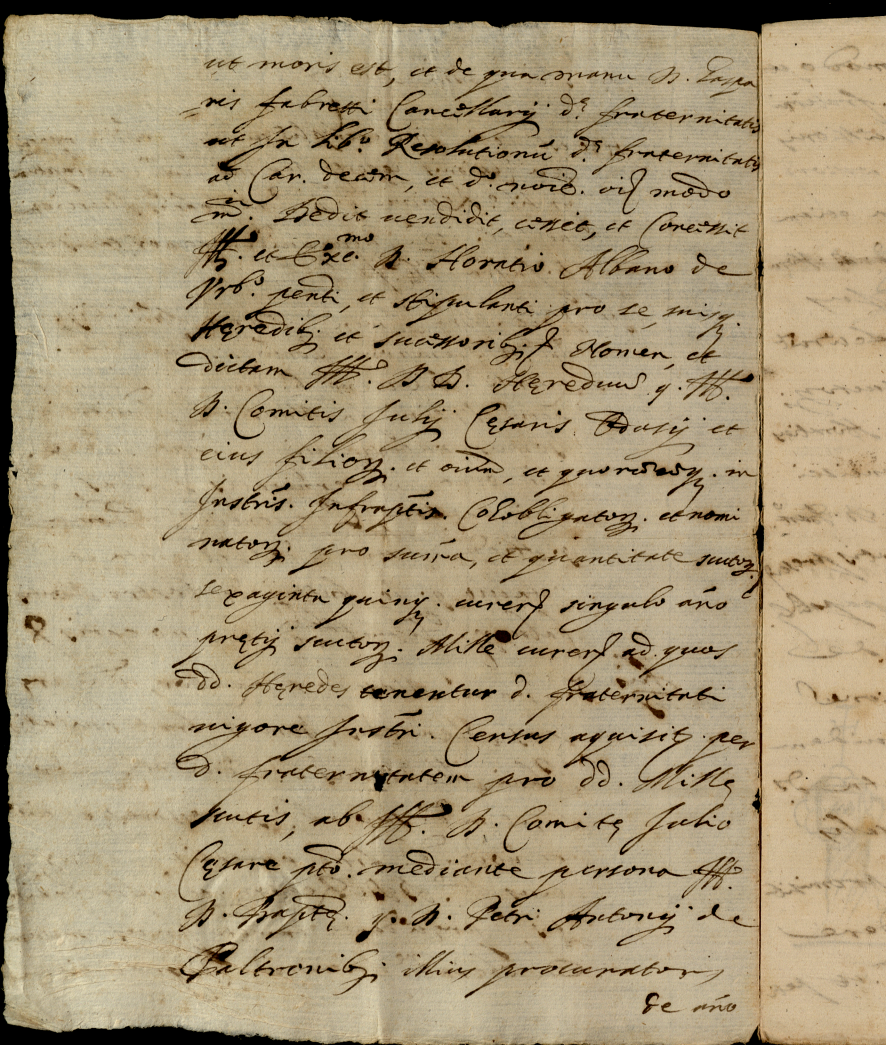 ut moris est, et de qua manu D. Gaspa
ris fabretti Cancellarij d.ę fraternitatis
ut In lib.o Resolutionũ d.ę fraternitatis
ad Car. decem, et d.o noiẽ. oĩ modo
Dedit vendidit, cessit, et Concessit
Ill.o et Exc.mo D. Horatio Albano de
Vrb.o pñti, et stipulanti pro se, suisq.
Heredibꝫ et successoribꝫ Nomen, et
dictam Ill. D D. Heredum q. Ill.
D. Comitis Julij Cęsaris et
eius filioꝝ. et oĩum, et quorũcũq. in
Instris. Infraptis. Coobligatoꝝ. et nomi
natoꝝ. pro sum̃a, et quantitate scutoꝝ.
sexaginta quinq. singulo año
pretij scutoꝝ. Mille ad quos
dd. Heredes tenentur d. fraternitati
vigore Instri. Census aquisiti per
d. fraternitatem pro dd. Mille
scutis, ab Ill. D. Comite Julio
Cęsare pto. mediante persona Ill.
D. Baptę. q. D. Petri Antonij de
Paltronibꝫ illius procuratoris
de año